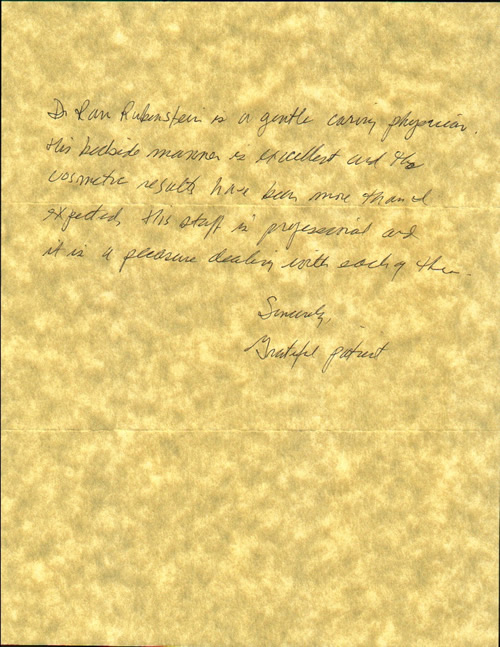 Dr Ran Rubenstein is a gentle caring physician.
His bedside manner is excellent and the
cosmetic results have been more than I
expected. His staff is professional and
it is a pleasure dealing with each of them.
Sincerely,
Grateful patient